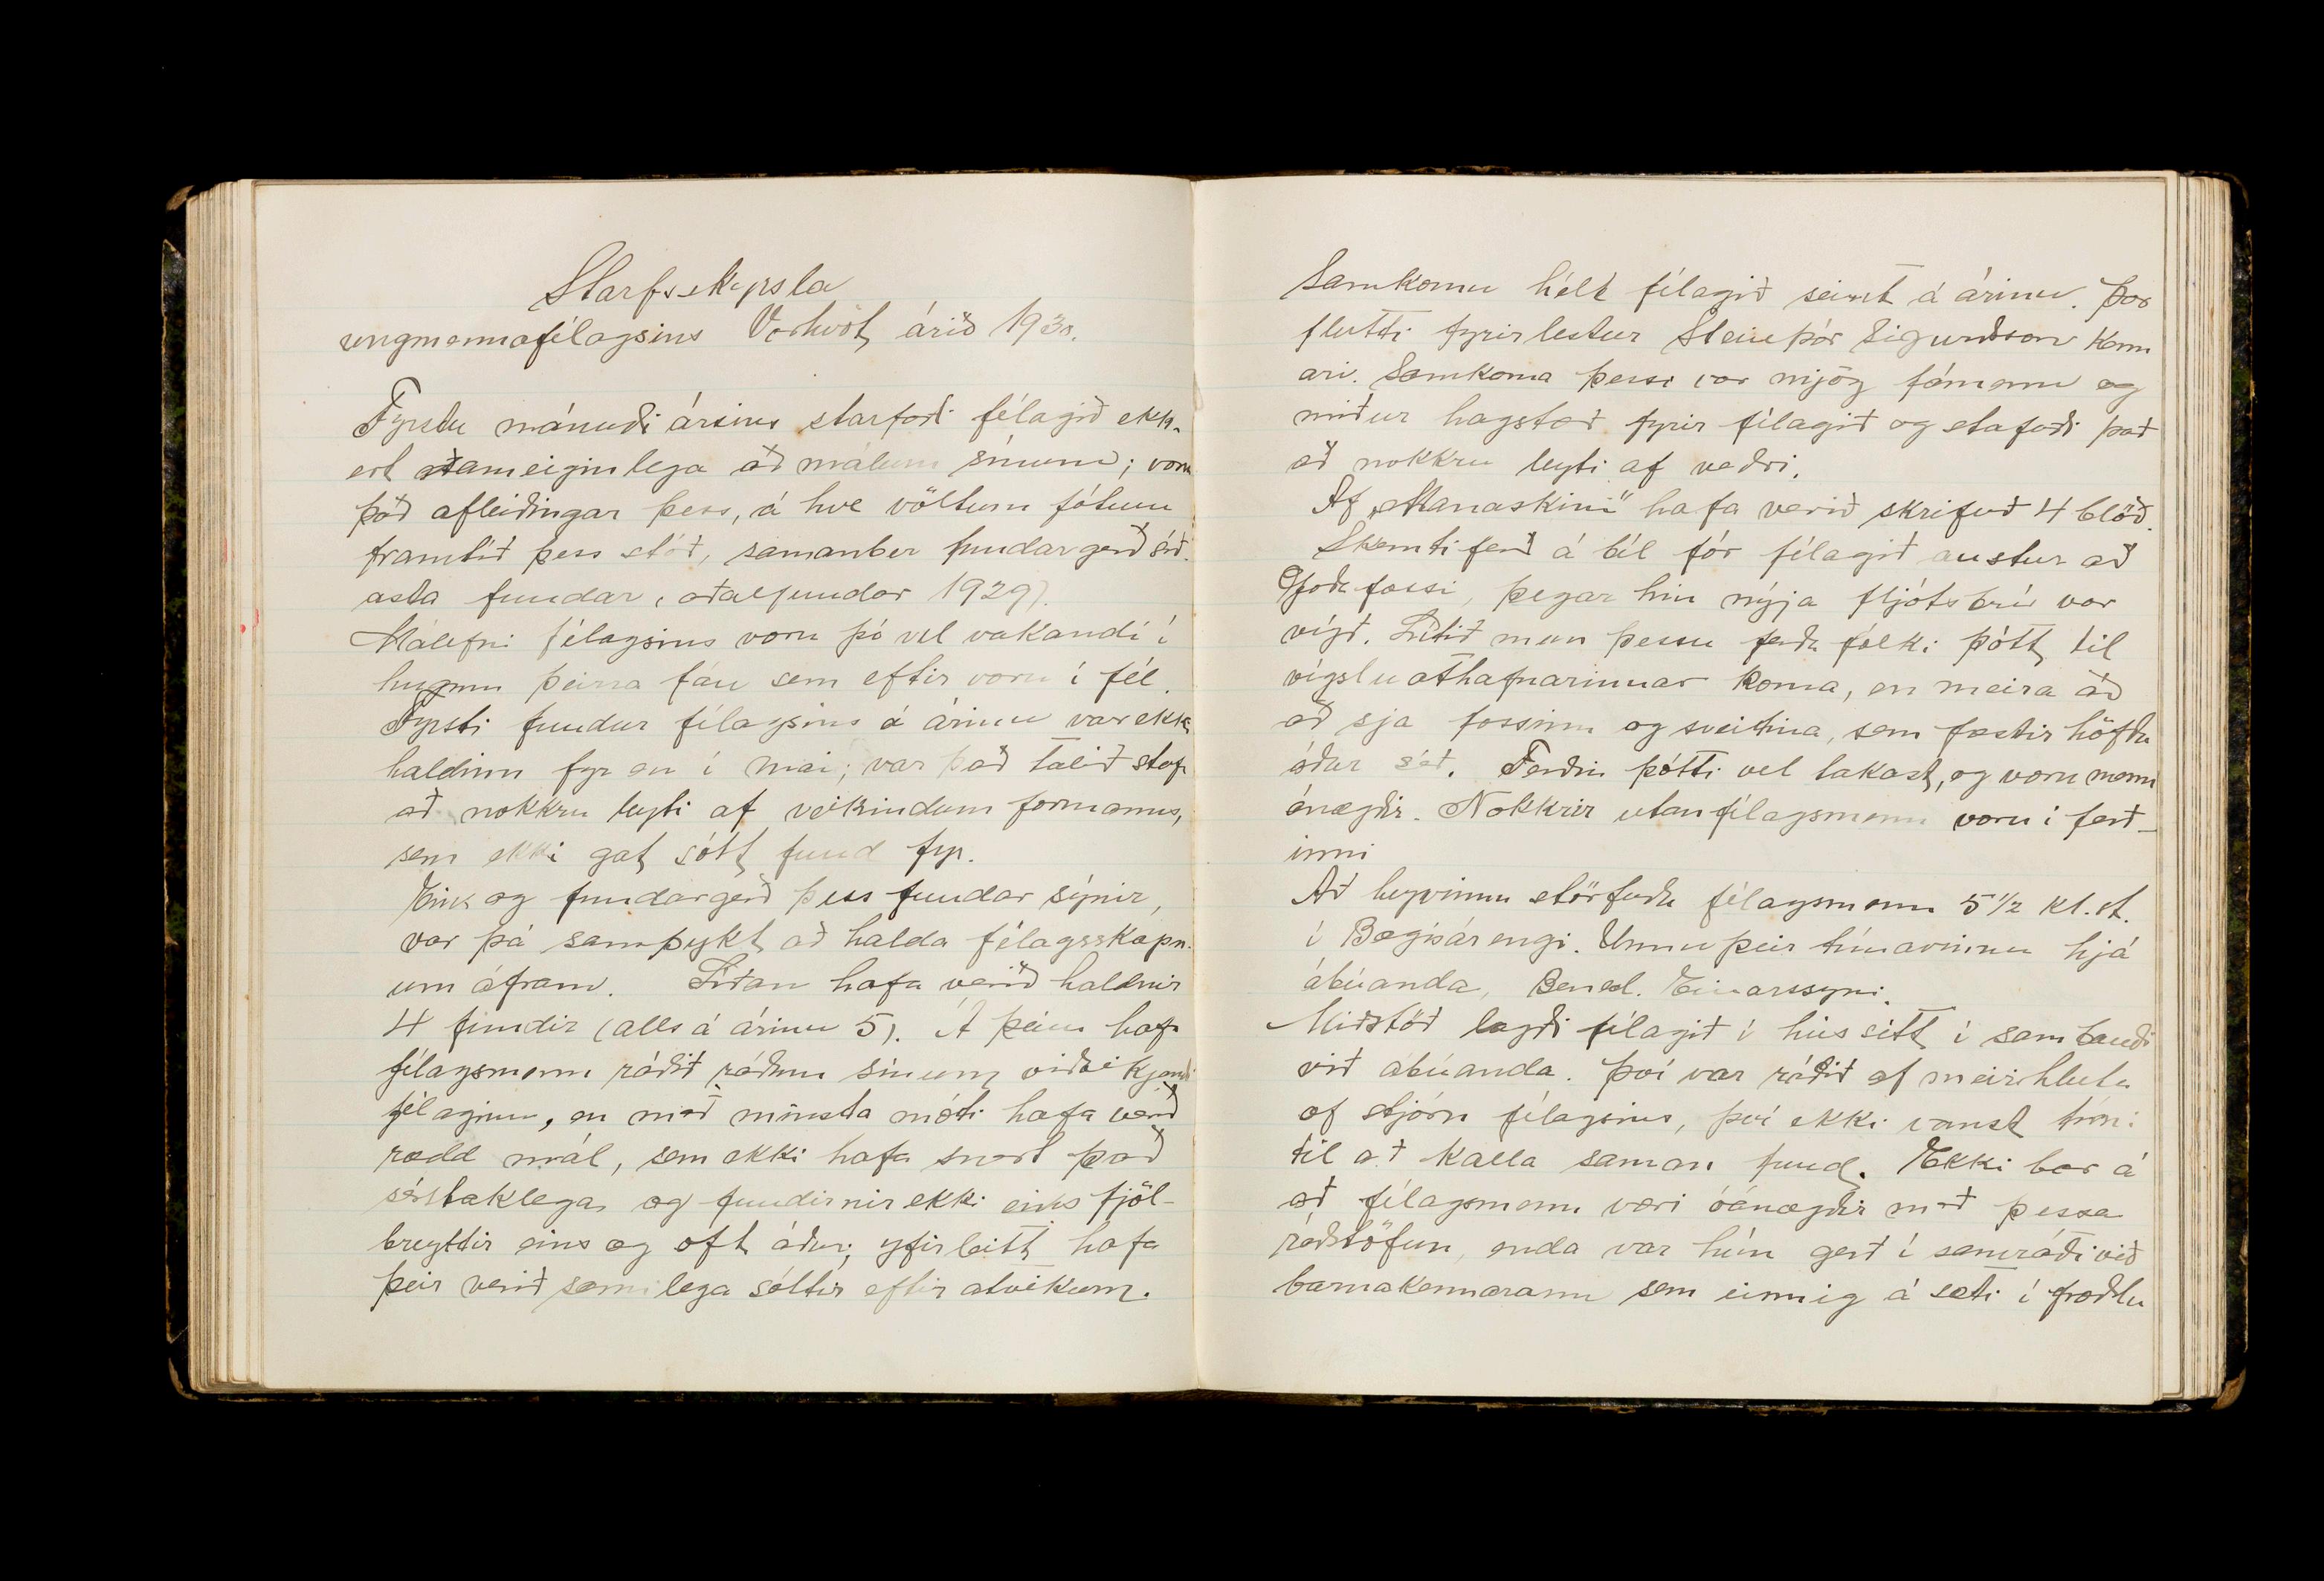 Starfsskýrsla
ungmennafélagsins Vorhvöt, árið 1930.
Fyrstu mánuði ársins starfaði félagið ekk-
ert sameiginlega að málum sínum; voru
það afleiðingar þess, á hve völtum fótum
framtíð þess stóð, samanber fundargerð síð-
asta fundar, aðalfundar 1929).
Málefni félagsins voru þó vel vakandi í
hugum þeirra fáu sem eftir voru í fél.
Fyrsti fundur félagsins á árinu var ekki
haldinn fyr en í maí; var það talið stafa
að nokkru leyti af veikindum formanns,
sem ekki gat sótt fund fyr.
Eins og fundargerð þess fundar sýnir,
var þá samþykt að halda félagsskapn-
um áfram. Síðan hafa verið haldnir
4 fundir (alls á árinu 5). Á þeim hafa
félagsmenn ráðið ráðum sínum viðvíkjandi
félaginu, en með minsta móti hafa verið
rædd mál, sem ekki hafa snert það
sérstaklega, og fundirnir ekki eins fjöl-
breyttir eins og oft áður; yfirleitt hafa
þeir verið sæmilega sóttir eftir atvikum.
Samkomu hélt félagið seint á árinu. Þar
flutti fyrirlestur Steinþór Sigurðsson kenn
ari. Samkoma þessi var mjög fámenn og
miður hagstæð fyrir félagið og stafaði það
að nokkru leyti af veðri.
Af „Manaskini" hafa verið skrifuð 4 blöð.
Skemtiferð á bíl fór félagið austur að
Goðafossi, þegar hin nýja fljótsbrú var
vígð. Lítið mun þessu ferðafólki þótt til
vígsluathafnarinnar koma, en meira að
að sjá fossinn og sveitina, sem fæstir höfðu
áður séð. Ferðin þótti vel takast, og voru menn
ánægðir. Nokkrir utanfélagsmenn voru í ferð-
inni
Að heyvinnu störfuðu félagsmenn 5 1/2 kl.st.
í Bægisárengi. Unnu þeir tímavinnu hjá
ábúanda, Bened. Einarssyni.
Miðstöð lagði félagið í hús sitt í sambandi
við ábúanda. Því var ráðið af meirihluta
af stjórn félagsins, því ekki vanst tími
til að kalla saman fund. Ekki bar á
að félagsmenn væri óánægðir með þessa
ráðstöfun, enda var hún gerð í samráði við
barnakennarann sem einnig á sæti í fræðslu